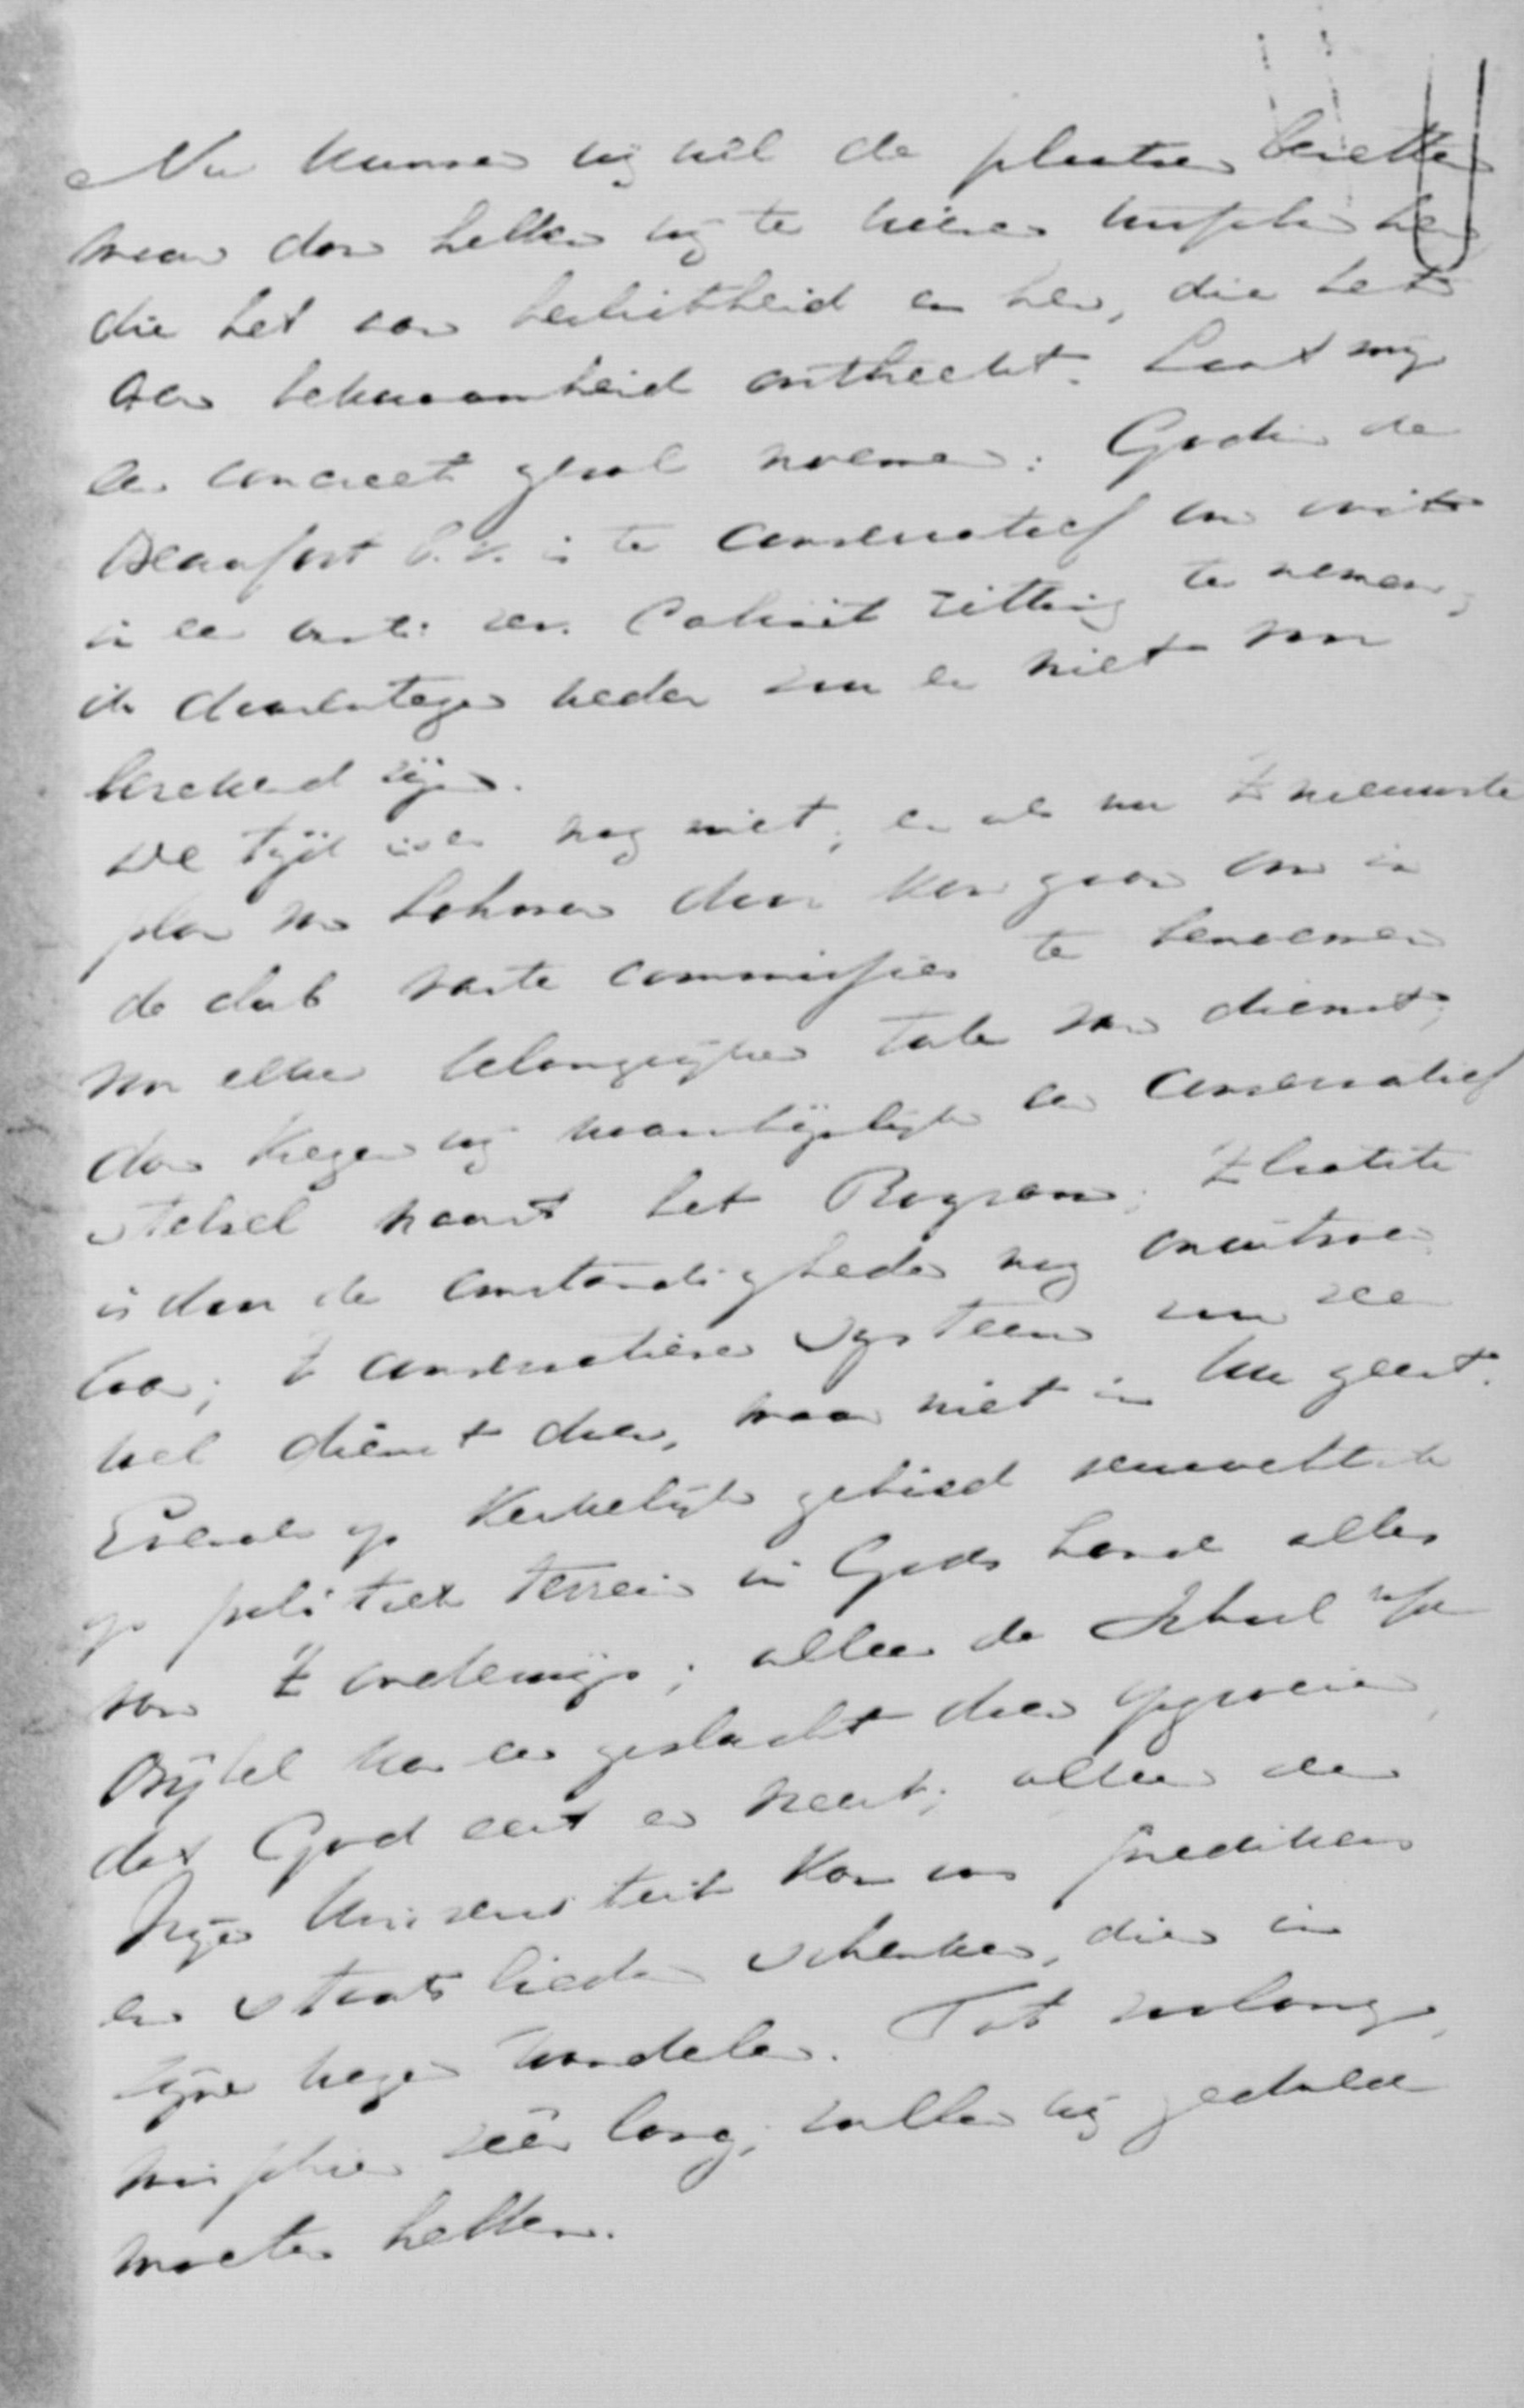 Nu kunnen wij wel de plaatsen bezetten
maar dan hebben wij te kiezen tusschen hen
die het aan beslistheid en hen, die het
aan bekwaamheid ontbreekt. Laat mij
een concreet geval noemen: Godin de
Beaufort b.v. is te conservatief om ooit
in een anti rev. Cabinet zitting te nemen,
ik daarentegen weder zou er niet voor
berekend zijn.
De tijd is er nog niet, en als nu 't nieuwste
plan van Lohman door kon gaan om in
de club vaste commissies te benoemen
voor elken belangrijken tak van dienst,
dan kregen wij waarschijnlijk een conservatief
stelsel naast het Program. 't laatste
is dan de omstandigheden nog
baar; 't conservatieve systeem zou zeer
wel dienst doen, maar niet in Uw geest.
Evenals op Kerkelijk gebied verwacht ik
op politiek terrein in Gods hand alles
van 't onderwijs; alleen de School
Bijbel kan een geslacht doen opgroeien,
dat God eert en vreest; alleen de
Vrije Universiteit kan ons predikers
en staatslieden schenken, die in
Zijne wegen wandelen. Tot zoolang,
misschien zéér lang, zullen wij geduld
moeten hebben.